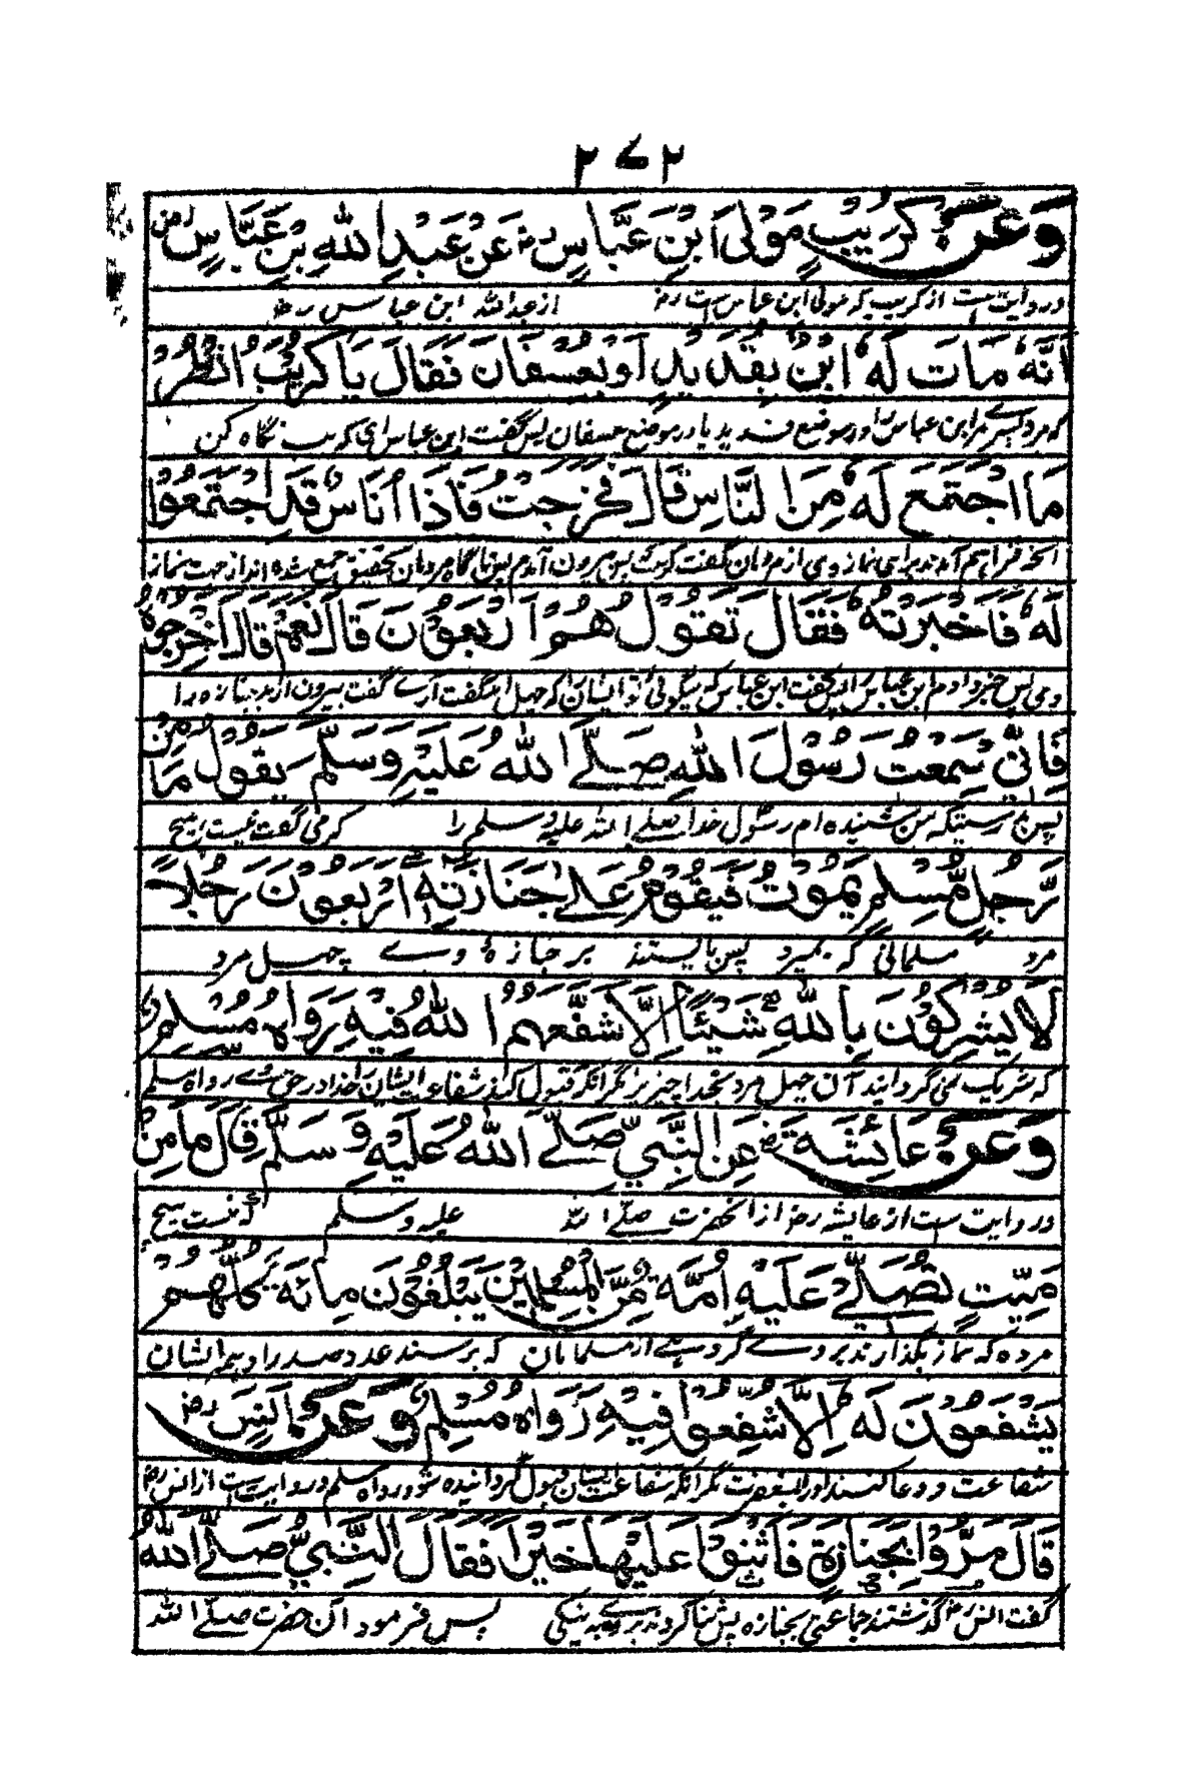 ۲۷۲
وَعَنْ كُرَيْبٍ مَوْلَى ابْنِ عَبَّاسٍ رض عَنْ عَبْدِ اللهِ بْنِ عَبَّاسٍ رض
و روایت است از کریب که مولی ابن عباس است رض از عبدالله ابن عباس رض
اَنَّهٗ مَاتَ لَهٗ ابْنٌ بِقُدَيْدٍ اَوْ بِعُسْفَانَ فَقَالَ يَا كُرَيْبُ انْظُرْ
که مرد پسرے مر ابن عباس را در موضع قدید یا در موضع عسفان پس گفت ابن عباس ای کریب نگاه کن
مَا اجْتَمَعَ لَهٗ مِنَ النَّاسِ قَالَ فَخَرَجْتُ فَاِذَا اُنَاسٌ قَدِ اجْتَمَعُوْا
انچه فراهم آمدند برای نماز وی از مردمان گفت کریب پس بیرون آمدم پس ناگاه مردمان بتحقیق جمع شده اند از جهت نماز
لَهٗ فَاَخْبَرْتُهٗ فَقَالَ تَقُوْلُ هُمْ اَرْبَعُوْنَ قَالَ نَعَمْ قَالَ اَخْرِجُوْهُ
وی پس خبر دادم ابن عباس را پس گفت ابن عباس که میگوئی تو ایشان را که چهل اند گفت آرے گفت بیرون آرید جنازه را
فَاِنِّيْ سَمِعْتُ رَسُوْلَ اللهِ صَلَّے اللهُ عَلَيْهِ وَسَلَّمَ يَقُوْلُ مَا مِنْ
پس بدرستیکه من شنیده ام رسول خدا صلے الله علیه و سلم را که می گفت نیست هیچ
رَّجُلٍ مُّسْلِمٍ يَمُوْتُ فَيَقُوْمُ عَلٰے جَنَازَتِهٖ اَرْبَعُوْنَ رَجُلًا
مرد مسلمانی که بمیرد پس بایستند بر جنازهٔ وے چهل مرد
لَا يُشْرِكُوْنَ بِاللهِ شَيْئًا اِلَّا شَفَّعَهُمُ اللهُ فِيْهِ رَوَاهُ مُسْلِمٌ
که شریک نمی گردانند آن چهل مرد بخدا چیزی را مگر آنکه قبول کند شفاعت ایشان را خدا در حق وے رواه مسلم
وَعَنْ عَائِشَةَ رض عَنِ النَّبِيِّ صَلَّے اللهُ عَلَيْهِ وَ سَلَّمَ قَالَ مَا مِنْ
و روایت است از عائشه رض از انحضرت صلے الله علیه و سلم که نیست هیچ
مَيِّتٍ تُصَلِّيْ عَلَيْهِ اُمَّةٌ مِّنَ الْمُسْلِمِيْنَ يَبْلُغُوْنَ مِائَةً كُلُّهُمْ
مرده که نماز بگذارند بروے گروهے از مسلمانان که برسند عدد صد را و همه ایشان
يَشْفَعُوْنَ لَهٗ اِلَّا شُفِّعُوْا فِيْهِ رَوَاهُ مُسْلِمٌ وَعَنْ اَنَسٍ رض
شفاعت و دعا کنند او را بمغفرت مگر آنکه شفاعت ایشان قبول گردانیده شود رواه مسلم و روایت است از انس رض
قَالَ مَرُّوْا بِجَنَازَةٍ فَاَثْنَوْا عَلَيْهَا خَيْرًا فَقَالَ النَّبِيُّ صَلَّے اللهُ
گفت انس رض گذشتند جماعتی بجنازه پس ثنا کردند بروے به نیکی پس فرمود آن حضرت صلے الله